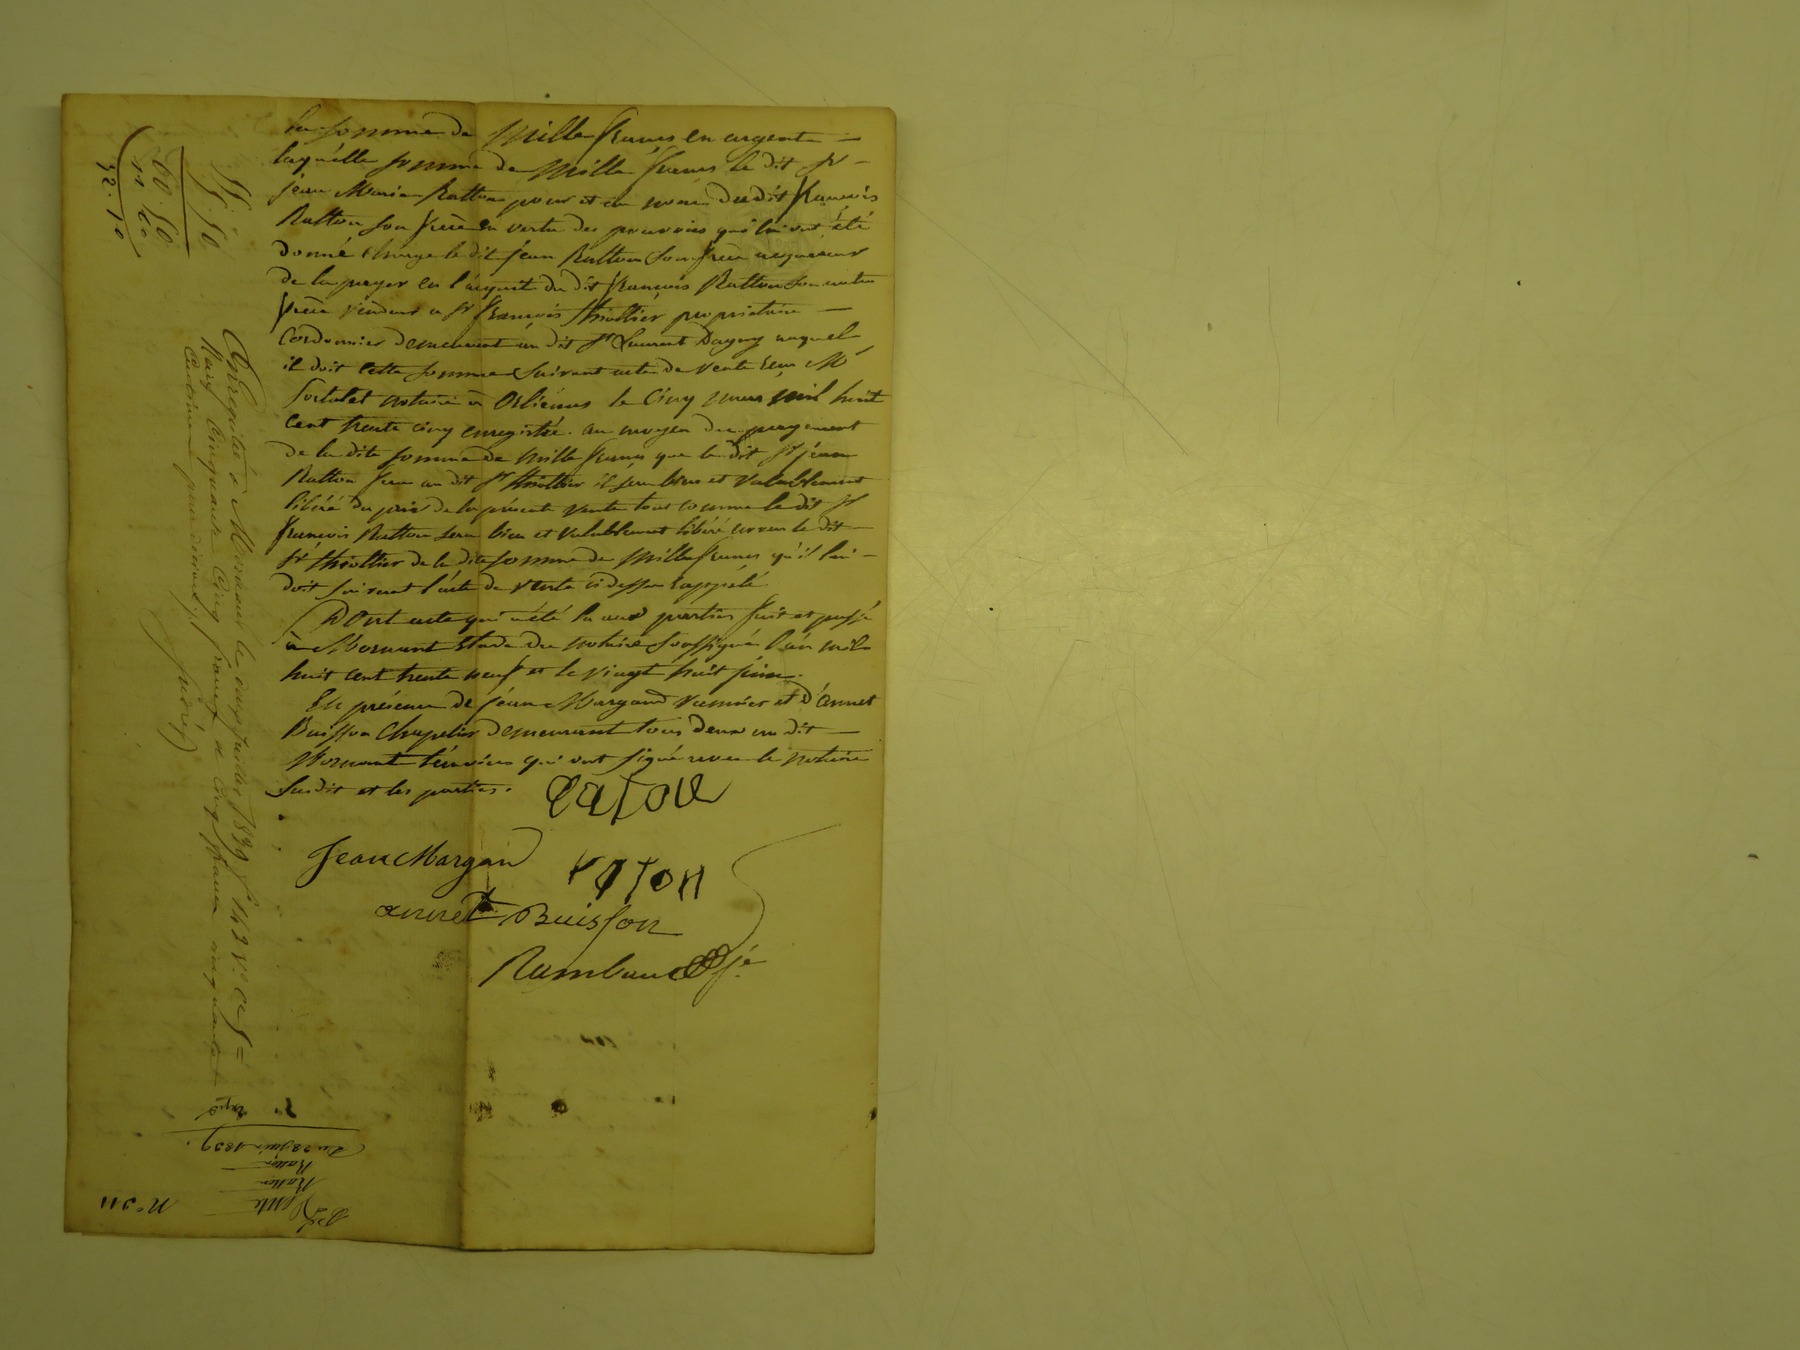 la somme de Mille francs en argent —
laquélle somme de Mille francs le dit Sr —
jean Marie Ratton pour et au nom dudit françois
Ratton son frère en vertu des pouvoirs qu'il lui ont été
donné charge le dit jean Ratton son frère acquereur
de la payer en l'acquit du dit françois Ratton son autre
frère vendeur a Sr françois thiollier propriétaire —
Cordonnier demeurant au dit St Laurent Dagny auquel
il doit cette somme suivant acte de vente reçu Me
notaire à Orliénas le Cinq mars mil huit
cent trente cinq enregistré. au moyen du payement
de la dite somme de Mille francs que le dit Sr jean
Ratton fera au dit Sr thiollier il sera bien et valablement
libéré du prix de la présente vente tout comme le dit Sr
françois Ratton sera bien et valablement libéré envers le dit —
Sr thiollier de la dite somme de Mille francs qu'il lui —
doit suivant l'acte de vente ci dessus rappelé
DOnt acte qui a été lu aux parties fait et passé
à Mornant Etude du notaire soussigné l'an mil
huit cent trente neuf et le vingt huit juin.
En présence de jean Margand et d'annet
Buisson Chapelier demeurant tous deux au dit —
Mornant témoins qui ont signé avec le notaire
susdit et les parties.
ratou
Jean Margan
raton
annet Buisson
Rambaud
55.50
60.50
32.10
Enregistré à Mornant le onze juillet 1839 fo 142 Vo Ces =
Reçu Cinquante Cinq francs et cinq francs cinquante
Centimes pour décime.
Expé
Du 28 juin 1839.
Ratton
Ratton
Vente
No 311